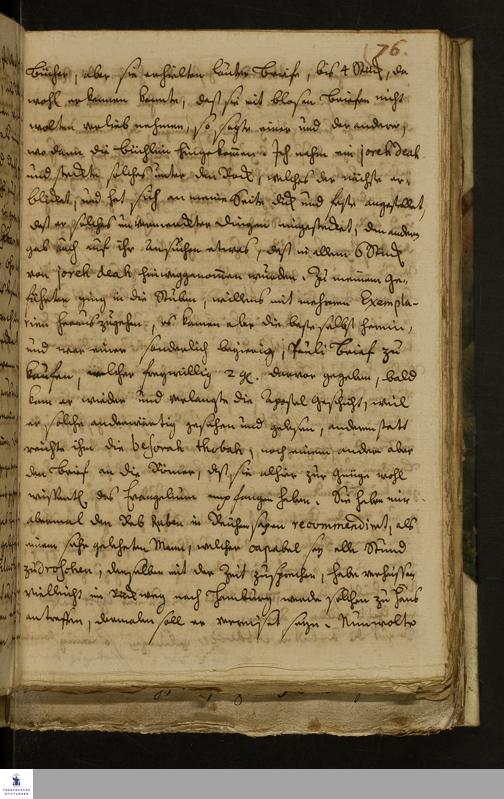 76.
Bücher, aber sie erhielten lauter Briefe, bis 4 Stück, da
wohl erkennen konnte, daß sie mit blosen Briefen nicht
wolten vorlieb nehmen, so sagte einer und der andere,
wo dann die Büchlein hingekommen. Ich nahm ein jorek deah
und steckte solches unter den Rock, welches der nächste er-
blicket, und hat sich an meine Seite dicht und feste angestellet,
daß er solches unvermerckter Dingen eingestecket, den andern
gab auch auf ihr Ansuchen etwas, daß in allem 6 Stück
von jorek deah hinweggenommen wurden. Zu meinem Ge-
fährten ging in die Stuben, willens mit mehrern Exempla-
rien herauszugehen, es kamen aber die beste selbst herein,
und war einer sonderlich begierig, Pauli Brief zu
kaufen, welcher freywillig 2 gl. davor gegeben, bald
kam er wieder und verlangte die Apostel Geschicht, weil
er solche anderwärtig gesehen und gelesen, an deren statt
reichte ihm die besorah thobah, noch einem andern aber
den Brief an die Römer, daß sie alhier zur Gnüge wohl
wissentl. das Evangelium empfangen haben. Sie haben mir
abermal den Rab in recommendiret, als
einen sehr gelehrten Mann, welcher capabel sey alle Stund
zu droschen, denselben mit der Zeit zu sprechen, habe verheissen
vielleicht im Rückweg nach Hamburg werde solchen zu Haus
antreffen, dermalen soll er verreiset seyn. Nun wolte
FRANCKESCHE
STIFTUNGEN